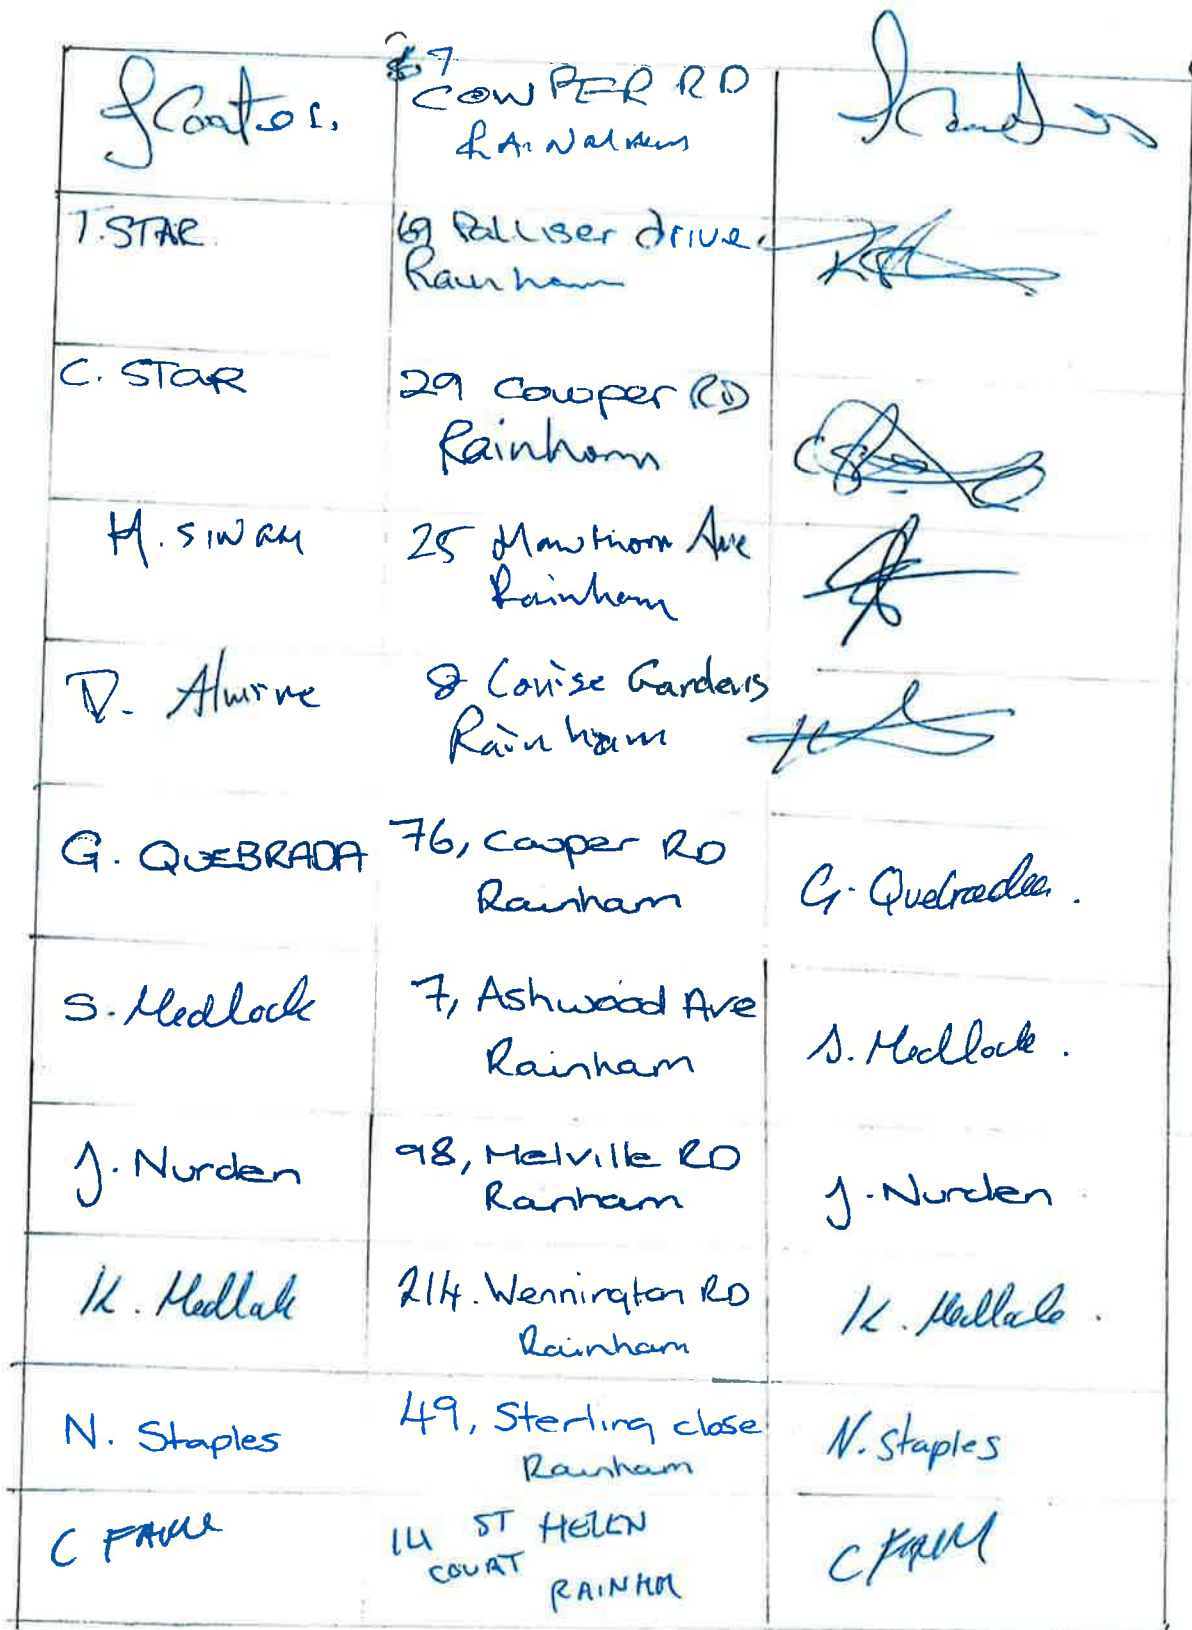 J Coates.
67
COWPER RD
RAINHAM
T. STAR
69 Palliser drive.
Rainham
C. STAR
29 Cowper RD
Rainham
25 Hawthorn Ave
Rainham
D.
8 Louise Gardens
Rainham
G. QUEBRADA
76, Cowper RD
Rainham
G. Quebrada.
S. Medlock
7, Ashwood Ave
Rainham
S. Medlock.
J. Nurden
98, Melville RD
Rainham
J. Nurden
K. Medlock
214. Wennington RD
Rainham
K. Medlock.
N. Staples
49, Sterling close
Rainham
N. Staples
C
14 ST HELEN
COURT
RAINHAM
C